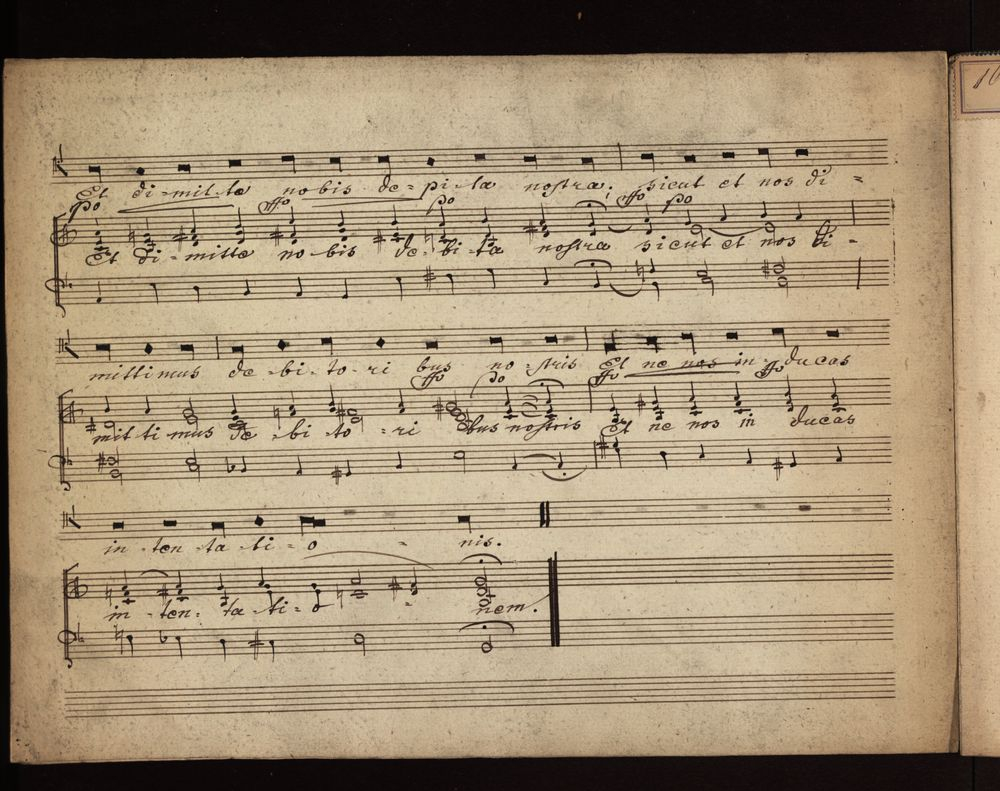 Et di-mit-te no-bis de-pi-ta nostra. sicut et nos di-
po ffo po ffo po
Et di-mitte no-bis de-bi-ta nostra sicut et nos di-
mittimus de-bi-to-ri bus no-stris Et ne nos in-ducas
ffo po ffo ffo
mit ti mus de bi-to-ri bus nostris Et ne nos in ducas
in-ten-ta-ti-o-nis.
in-ten-ta-ti-o-nem.